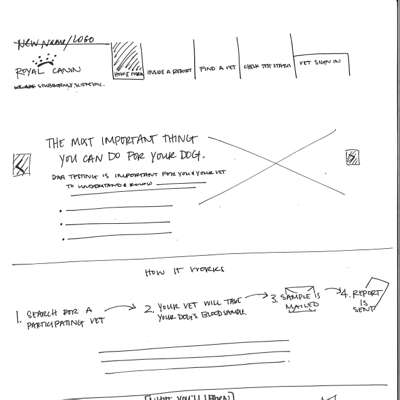 NEW NAME/LOGO
ROYAL CANIN
INSIDE A REPORT
FIND A VET
CHECK TEST STATUS
VET SIGN IN
THE MOST IMPORTANT THING
YOU CAN DO FOR YOUR DOG.
DNA TESTING IS IMPORTANT FOR YOU & YOUR VET
TO UNDERSTAND & KNOW
HOW IT WORKS
1. SEARCH FOR A
PARTICIPATING VET
2. YOUR VET WILL TAKE
YOUR DOG'S BLOOD SAMPLE
3. SAMPLE IS
MAILED
4. REPORT
IS
SENT
WHAT YOU'LL LEARN